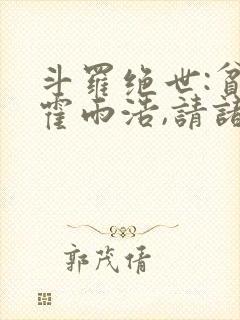 斗羅绝世:貧
霍雨浩,請諸
郭茂倩